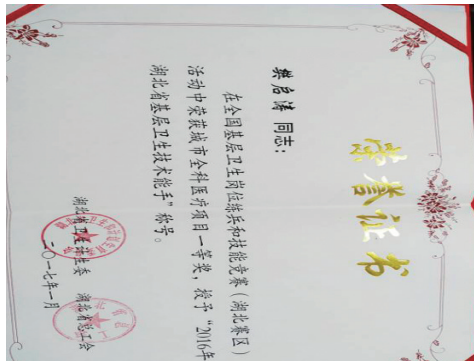 荣誉证书
樊启涛 同志：
在全国基层卫生岗位练兵和技能竞赛（湖北赛区）
活动中荣获城市全科医疗项目一等奖，授予“2016年
湖北省基层卫生技术能手”称号。
湖北省卫生计生委 湖北省总工会
二〇一七年一月